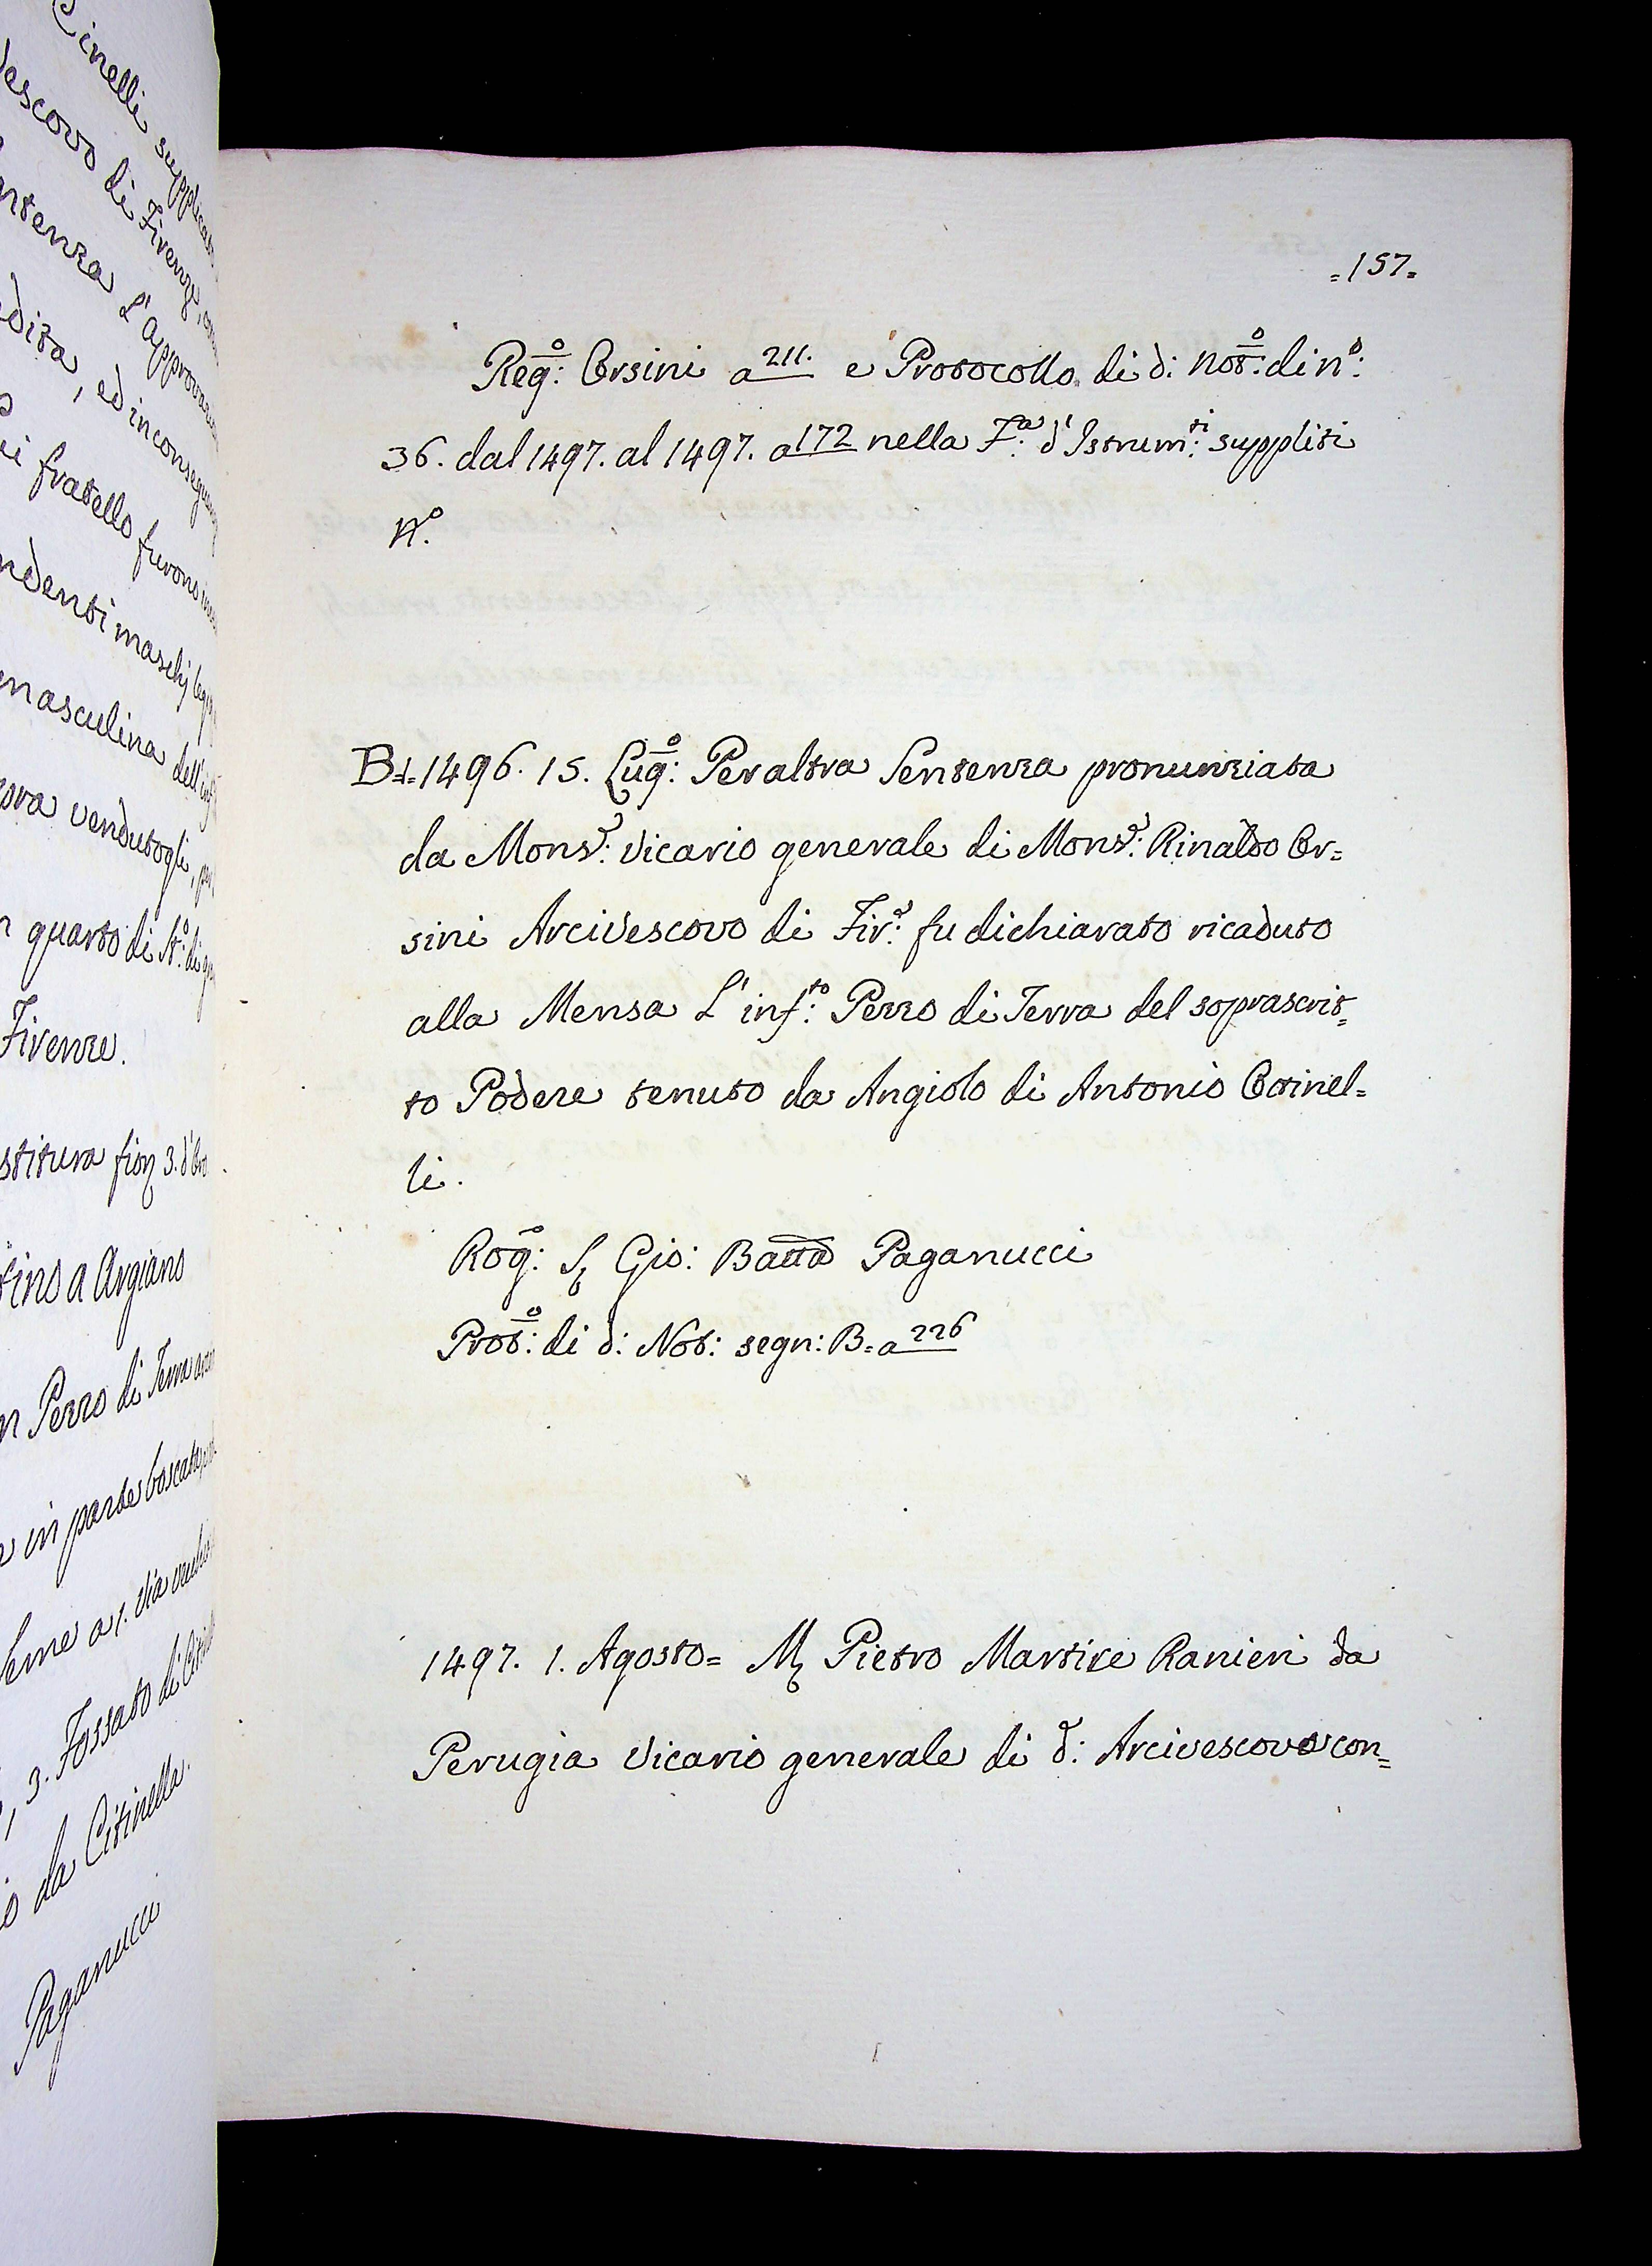 Cinelli supplicat
vescovo di Firenze, con
ntenza L'approvazi
edita, ed in conseguenz
i fratello furono inv
ndenti maschj legi
masculina dell'inf
ora vendutogli, per
n quarto di St.o: di gr
Firenze.
stitura fior 3. d'Oro
tino a Argiano
n Pezzo di Terra
e in parte boscato
3. Fossato di
o da Citinella.
Paganucci
=157=
Reg:o Orsini a 211. e Protocollo di d: Not:o di n:o
36. dal 1497. al 1497. a 172 nella F:a d'Istrum:ti suppliti
N.o
B=1=1496. 15. Lug:o Per altra Sentenza pronunziata
da Mons:r Vicario generale di Mons:r Rinaldo Or=
sini Arcivescovo di Fir:e fu dichiarato ricaduto
alla Mensa L'inf:to Pezzo di Terra del soprascrit=
to Podere tenuto da Angiolo di Antonio Citinel=
li.
Rog:o S. Gio: Batta Paganucci
Prot:o di d: Not: segn: B= a 226
1497. 1. Agosto= M. Pietro Martire Ranieri da
Perugia Vicario generale di d: Arcivescovo con=